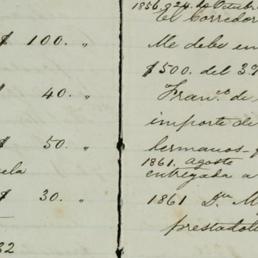 $ 100. "
$ 40. "
$ 50. "
uela
$ 30. "
32
1856, 24 de Octubr
El Corredor
Me debe en
$500. del 3%
Fran.co de
importe de
hermanos
1861. agosto
entregada a
1861 Dn. M
prestado